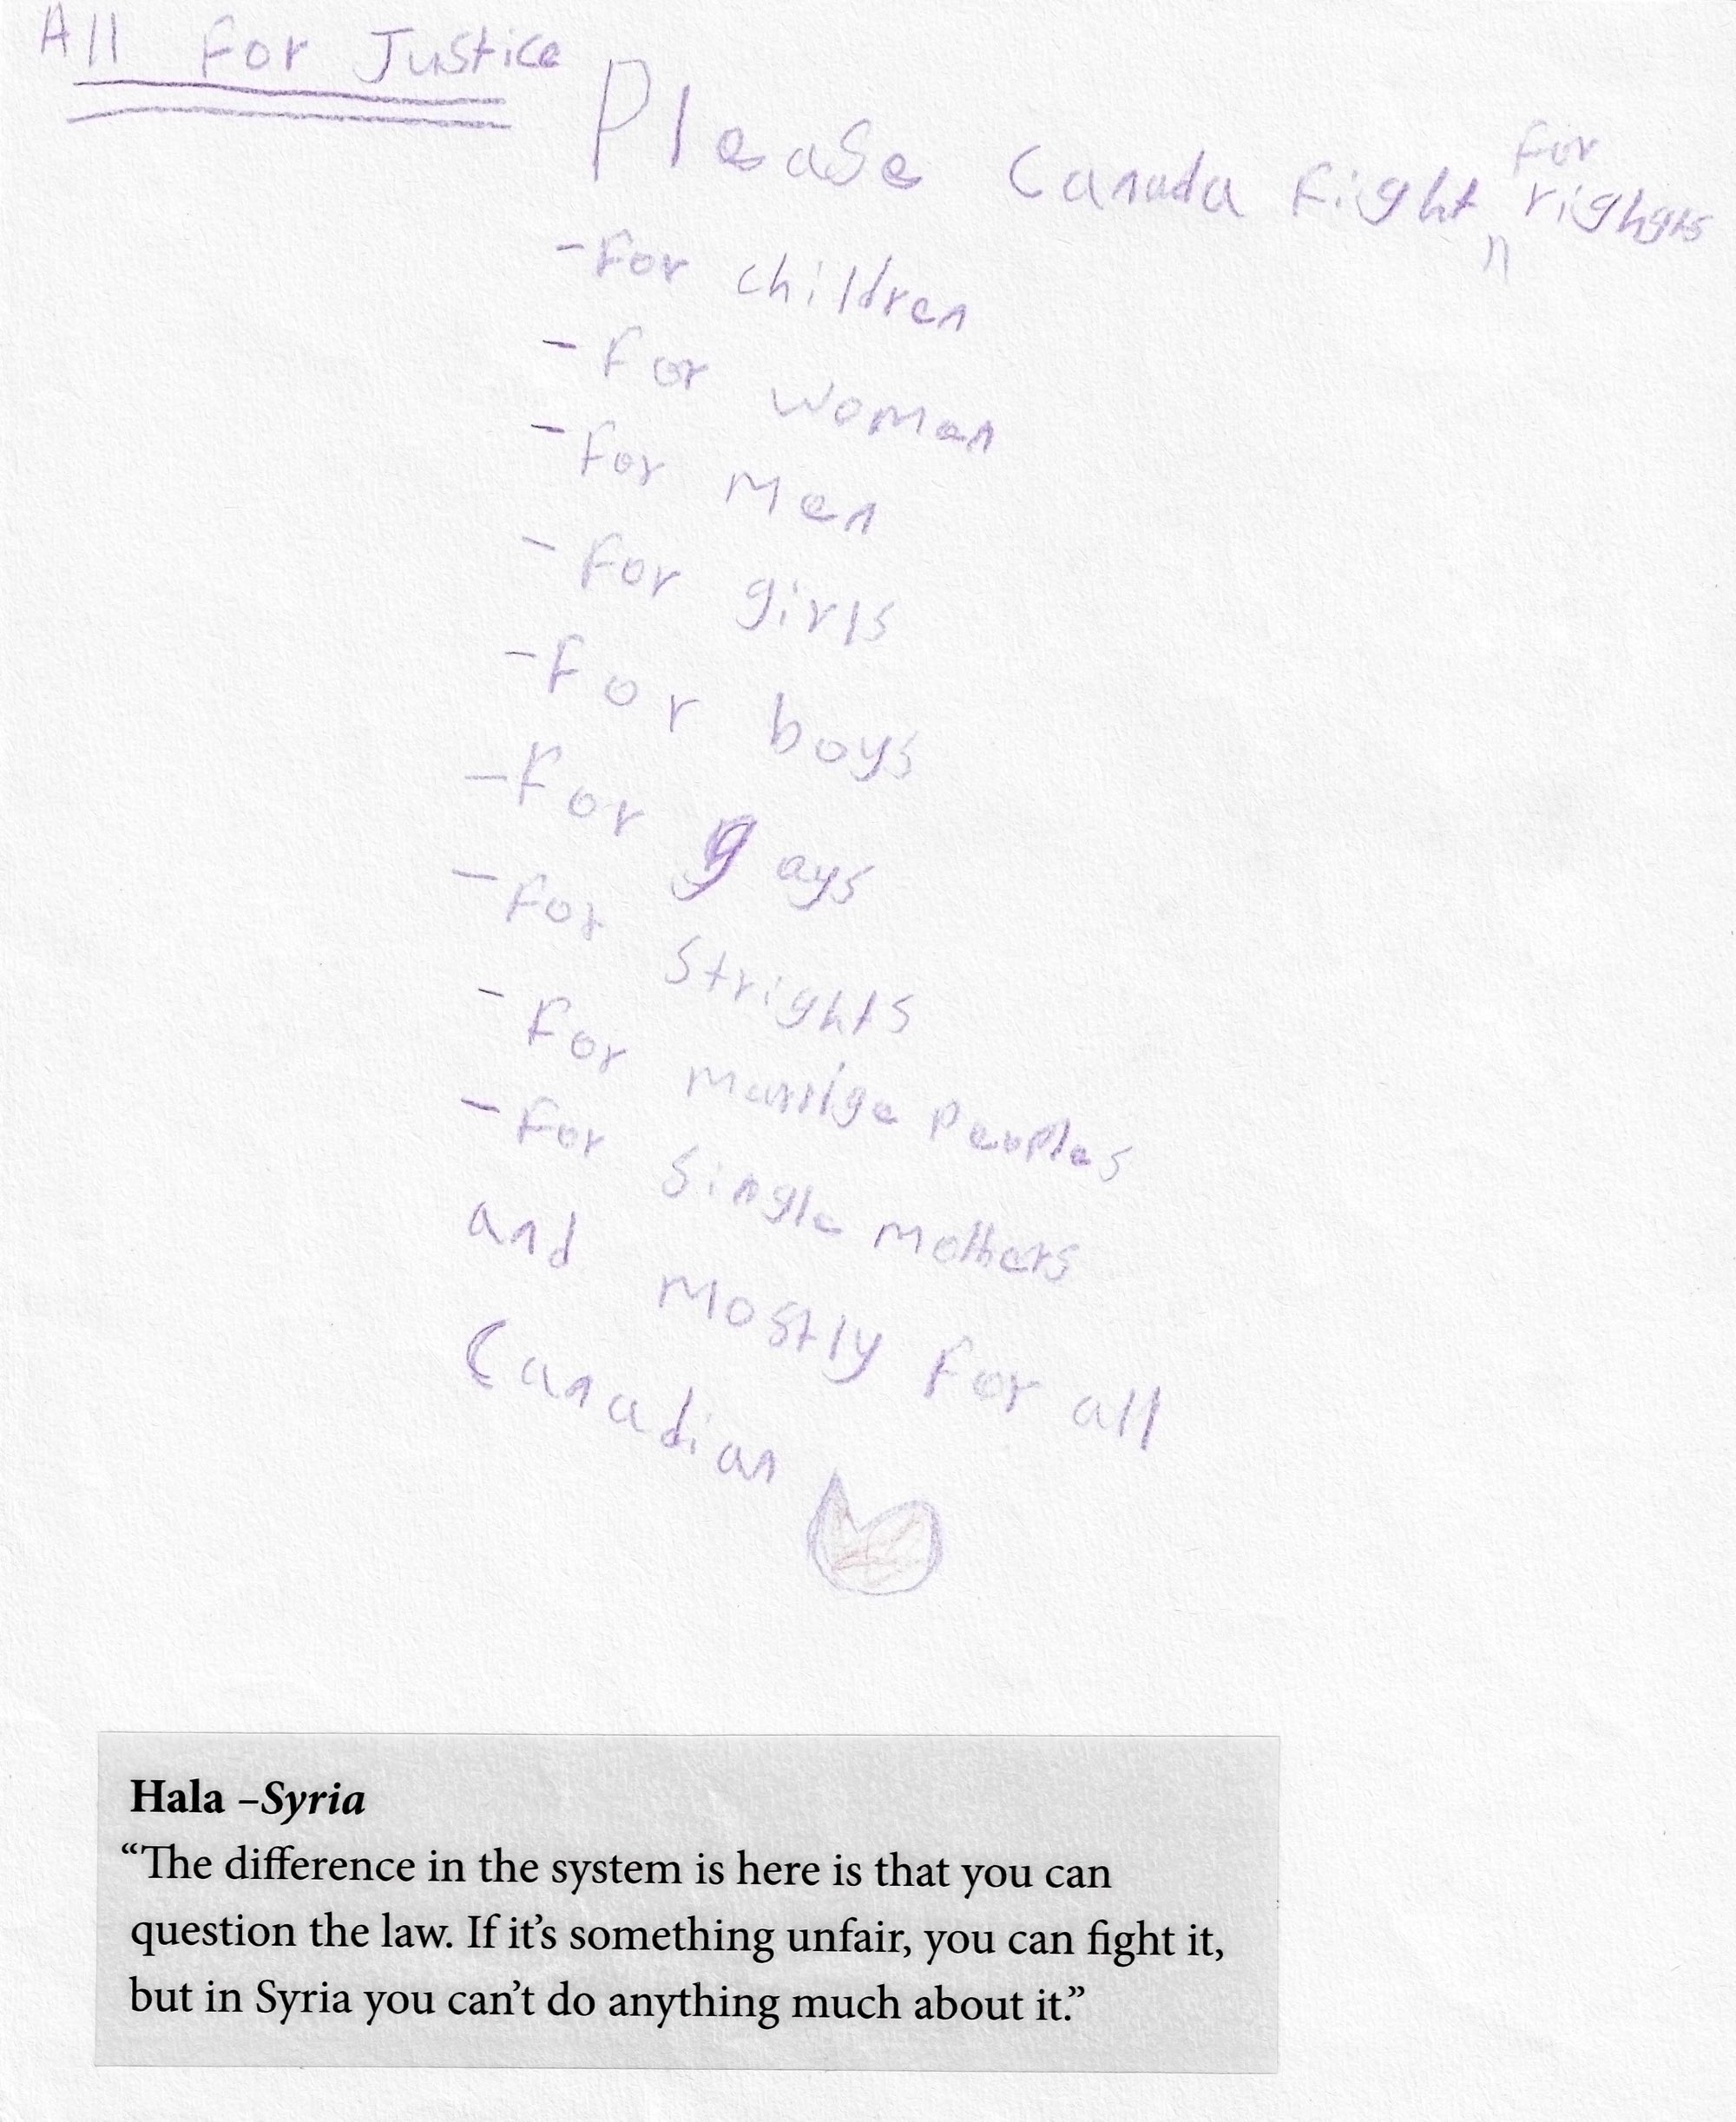 All For Justice
Please Canada Fight for righgts
- For children
- For women
- For Men
- For girls
- For boys
- For gays
- For strights
- For marrige peoples
- For single mothers
and mostly for all
Canadian
Hala –Syria
“The difference in the system is here is that you can
question the law. If it’s something unfair, you can fight it,
but in Syria you can’t do anything much about it.”